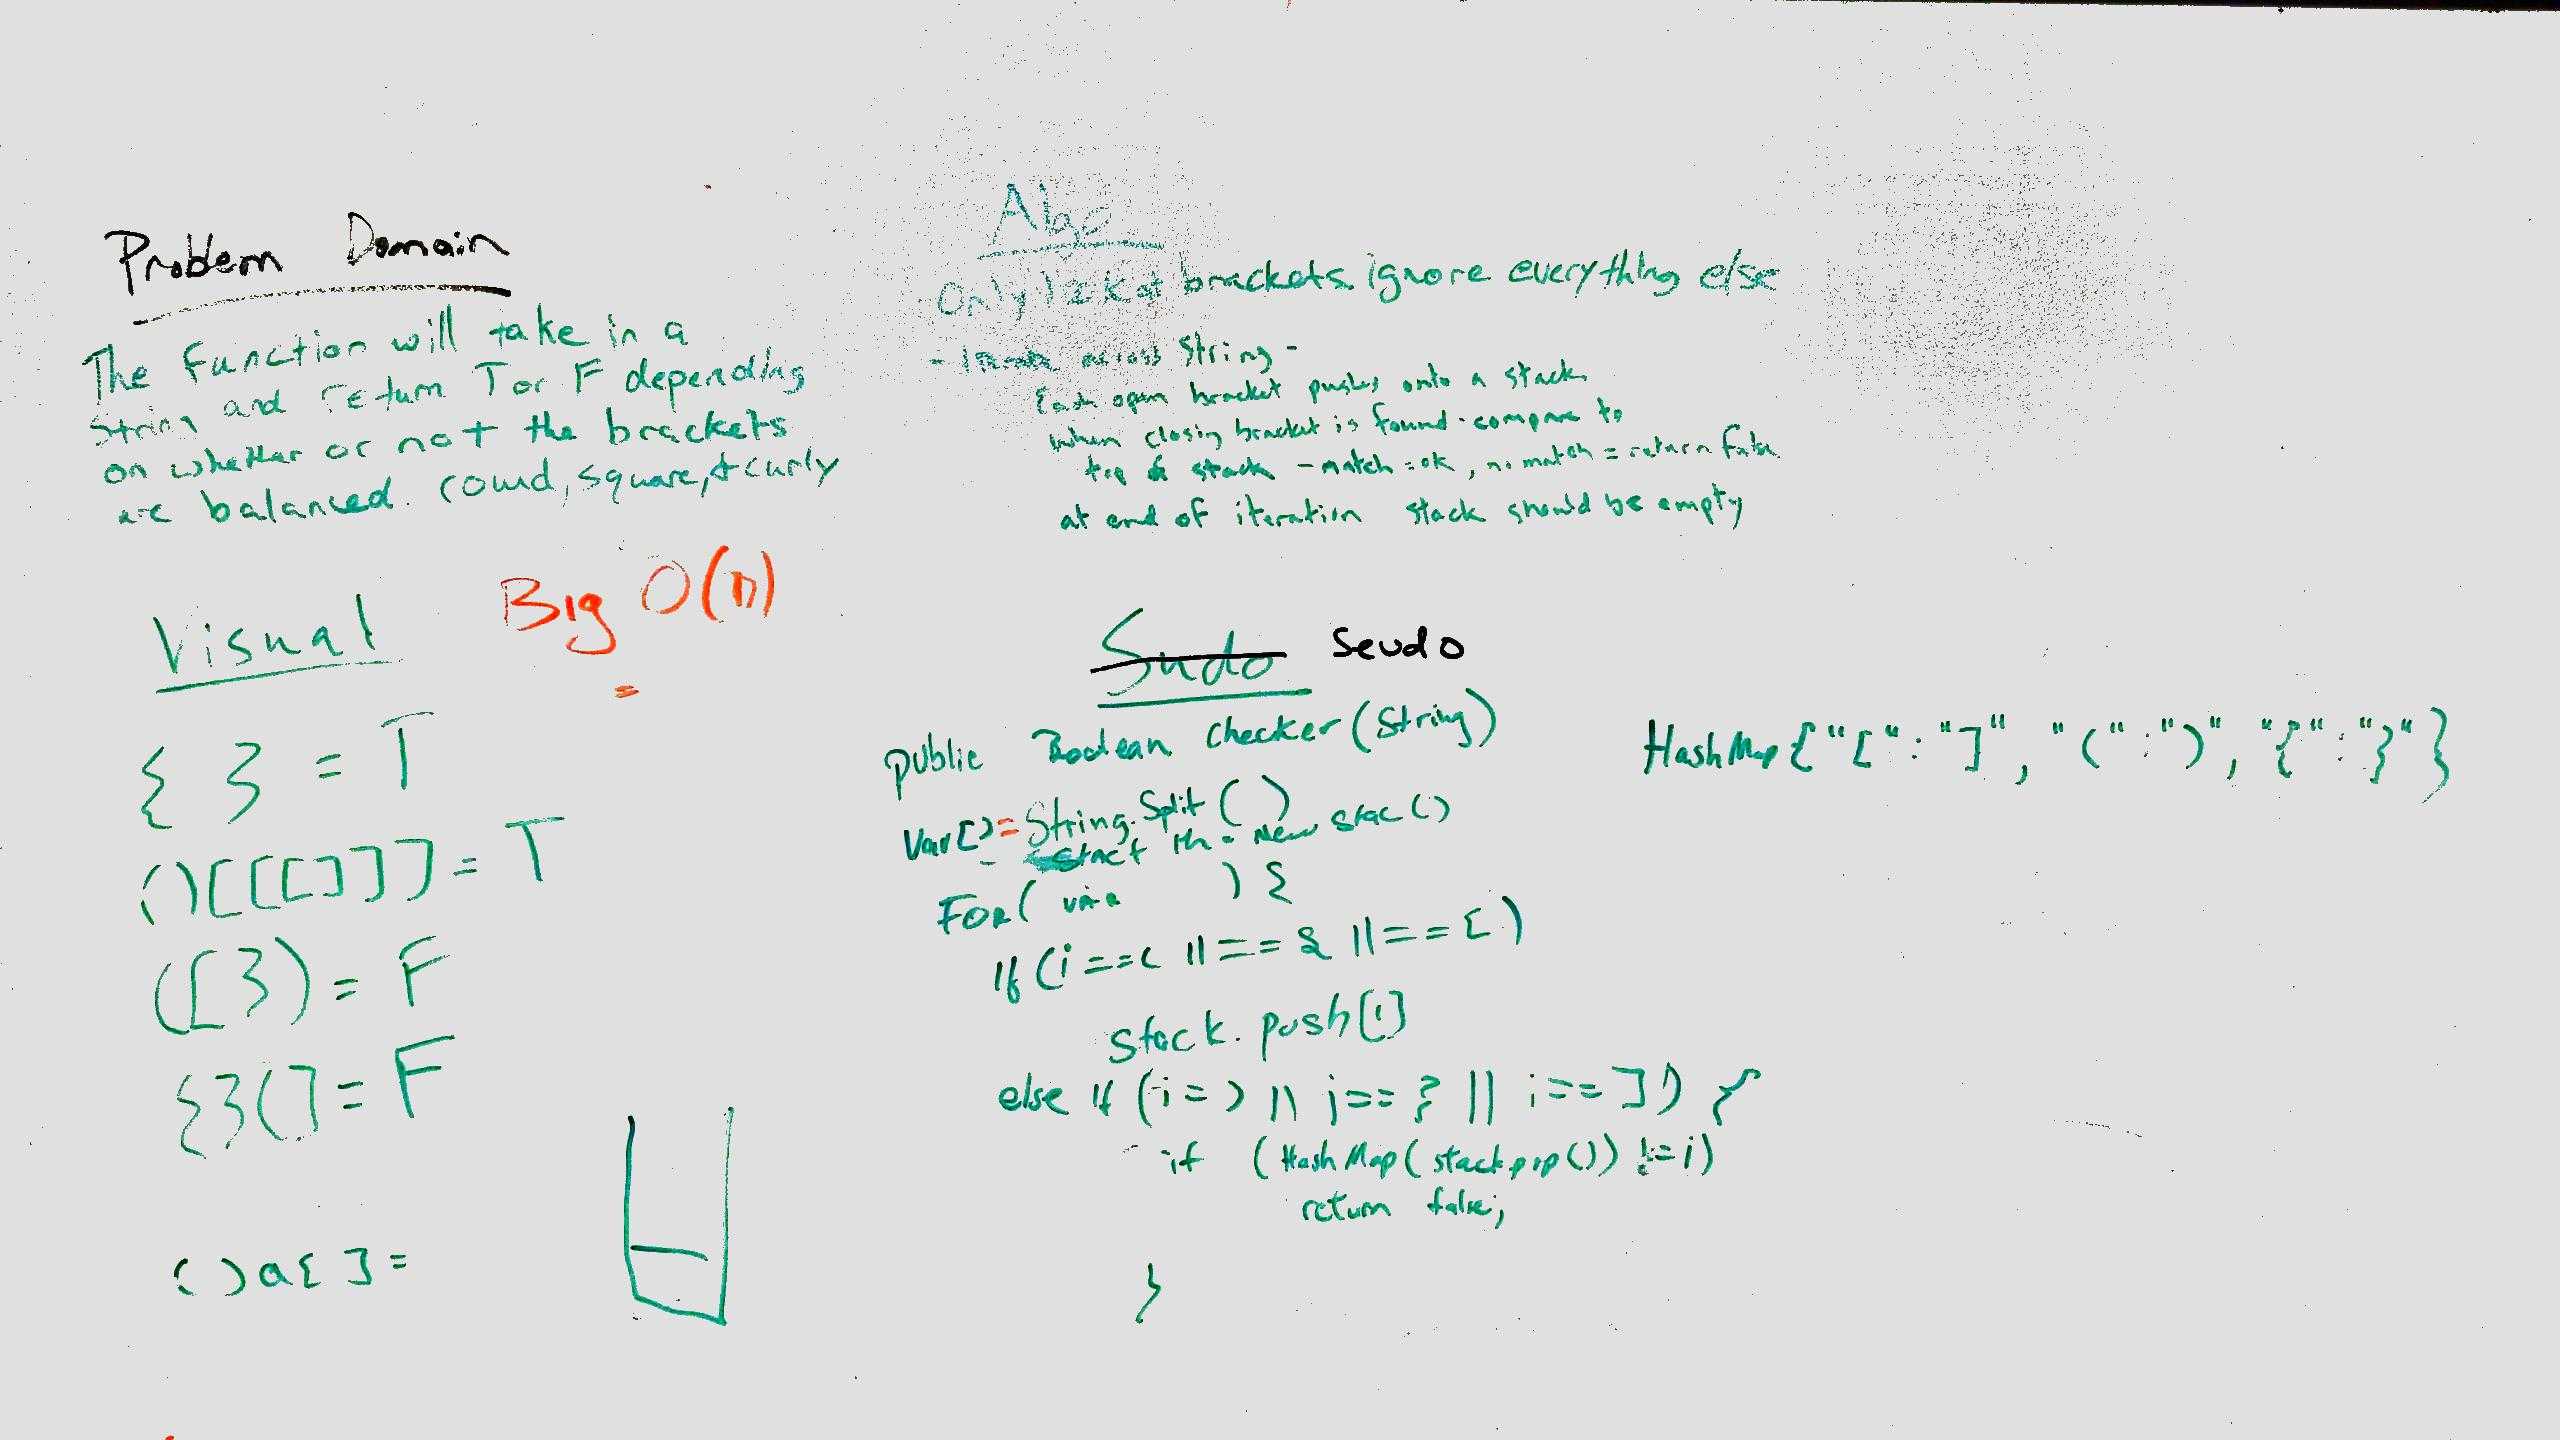 Problem Domain
The function will take in a
String and return T or F depending
on whether or not the brackets
are balanced. round, square, & curly
Big O(n)
=
Visual
{ } = T
()[[[]]] = T
([}) = F
{}(] = F
()a{ ] =
Algo
Only look at brackets. ignore everything else
- across String -
Each open bracket pushes onto a stack
when closing bracket is found - compare to
top of stack - match = ok, no match = return false
at end of iteration stack should be empty
Sudo Seudo
public Boolean checker (String)
Var[] = String.Split ( )
= new stac ()
For ( ) {
If (i == ( || == { || == [ )
stack. push[i]
else if (i = ) || i == } || i == ]) {
if (Hash Map (stack pop()) != i)
return false;
}
HashMap {"[" : "]", "(" : ")", "{" : "}" }